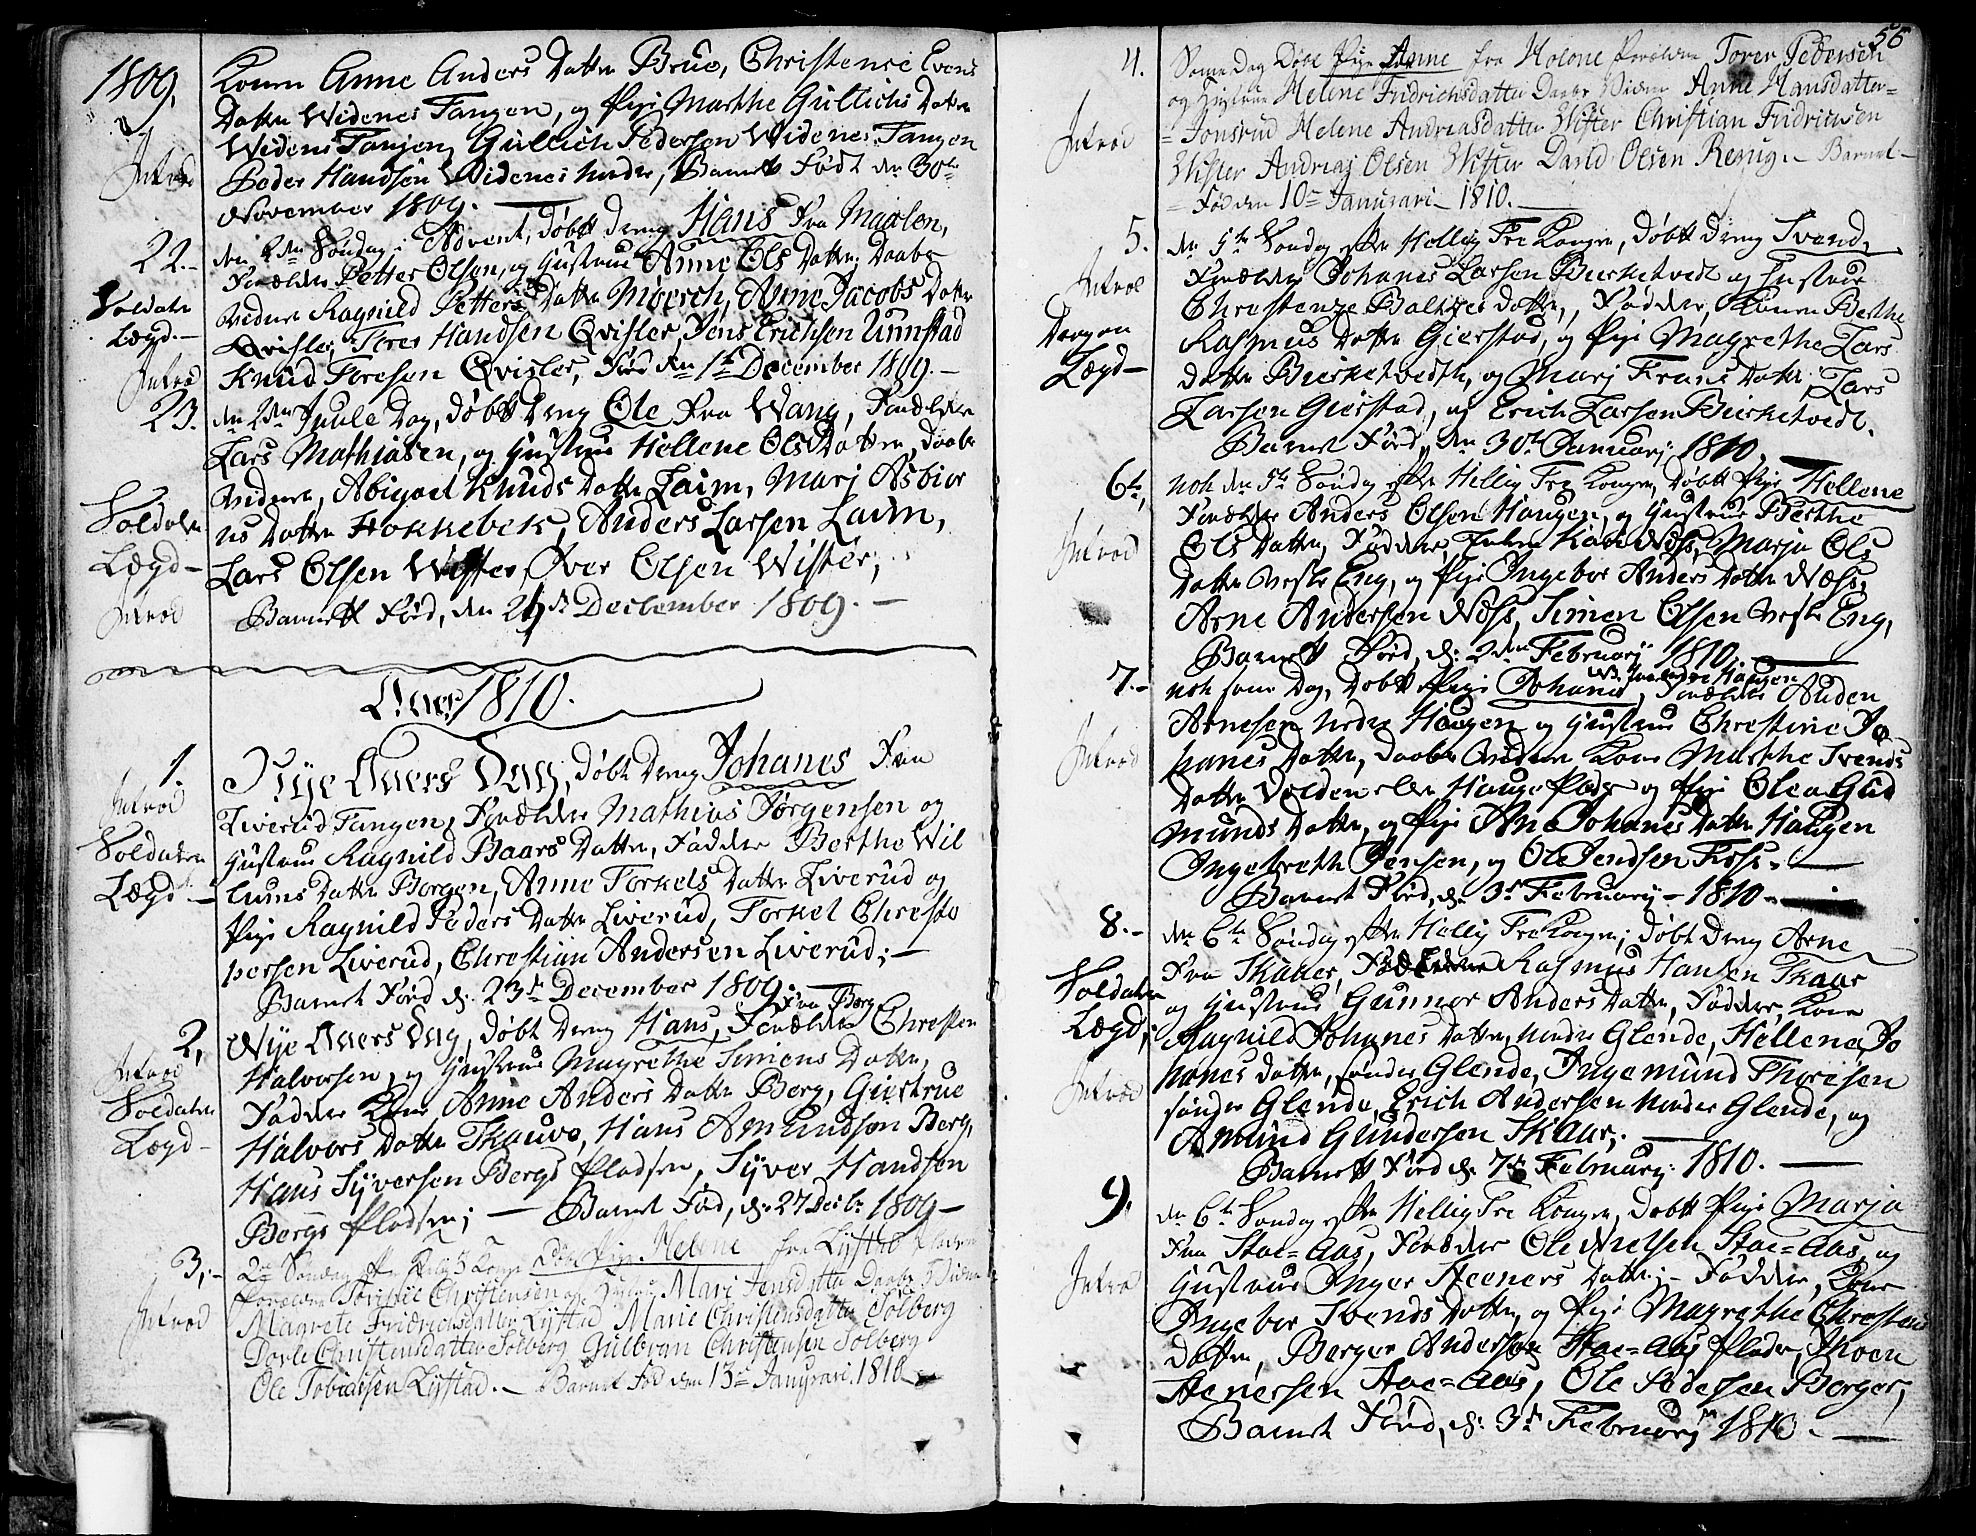 1809.
Konen Anne Anders Datter Brue, Christence Evens
Datter Widenes Tangen, og Pige Marthe Gullichs Datter
Widens Tangen, Gullich Pedersen Widenes Tangen
Peder Handsen Widenes nedre, Barnet Født den 30te
November 1809.
Introd
22. den 2den Søndag i Advent, døbt Dreng Hans Fra Maalen,
Forældre Petter Olsen, og Hustrue Anne Ols Datter, Daabs
Soldater Lægd.
Vidner Ragnild Petters Datter Moersch, Anne Jacobs Datter
Qvisler, Tores Handsen Qvisler, Jens Erichsen Unnstad
Knud Toresen Qvisler, Fød den 1te December 1809.
Introd
23. den 2den Juule Dag, døbt Dreng Ole Fra Wang, Forældre
Lars Mathiasen, og Hustrue Hellene Ols Datter, Daabs
Vidner, Abigael Knuds Datter Laim, Marj Asbiør
Soldater Lægd
ns Datter Hokkebek, Anders Larsen Laim,
Lars Olsen Wister, Over Olsen Wister,
Introd
Barnet Fød, den December 1809.
Aar 1810.
1. Nye Aars Dag, døbt Dreng Johanes Fra
Introd
Liverud Tangen, Forældre Mathias Jørgensen og
Soldater Lægd
Hustrue Ragnild Baars Datter, Fadder Berthe Wil
lums Datter Borgen, Anne Torkels Datter Liverud og
Pige Ragnild Peders Datter Liverud, Torkel Christo
persen Liverud, Christian Andersen Liverud;
Barnet Fød d. 23de December 1809.
Fra Berg
2, Nye Aars Dag, døbt Dreng Hans, Forældre Christen
Introd
Halvorsen, og Hustrue Magrethe Simens Datter,
Soldater Lægd
Fadder Kone Anne Anders Datter Berg, Giertrue
Halvors Datter Skauvo, Hans Amundsøn Berg,
Hans Syversen Bergs Pladsen, Syver Handsen
Bergs Pladsen; Barnet Fød, d. 27 Decbr 1809
3, 2den Søndag efter Hellig 3 Konge Døbt Pige Helene fra Lystad
Introd
Forældre Christensen og Hustru Mari Jensdatter Daabs Vidner
Magrete Fridrichsdatter Lystad Marie Christensdatter Solberg
Dorle Christensdatter Solberg Gulbran Christensen Solberg
Ole Tobiassen Lystad. Barnet Fød den 13de Januari 1810
56
4. Same Dag Døbt Pige Anne fra Holone Forældre Torer Pedersen
og Hustrue Helene Fridrichsdatter Daabs Vidner Anne Hansdatter
Introd
Jonsrud Helene Andreasdatter Wister Christian Fridrichsen
Wister Andreas Olsen Wister David Olsen Resug. Barnet
Fød den 10de Januari 1810.
5. den 5te Søndag efter Hellig Tre Konger, døbt Dreng Svend,
Introd
Forældre Johanes Larsen Birketvedt og Hustrue
Christenze Baltzer Datter, Fadder, Konen Berthe
Dragon Lægd
Rasmus Datter Gierstad, og Pige Magrethe Lars
Datter Birketvedt, og Marj Frans Datter, Lars
Larsen Gierstad, og Erich Larsen Birketvedt.
Barnet Fød, den 30te Januarj 1810
6te, nok den 5te Søndag efter Hellig Tre Konger, døbt Pige Hellene
Forældre Anders Olsen Haugen, og Hustrue Berthe
Introd
Ols Datter, Fadder, Kari Næss, Marja Ols
Datter Vestre Eng, og Pige Ingebor Anders Datter Næss,
Arne Andersen Næss, Simen Olsen Vestre Eng,
Barnet Fød, d. 2den Februarj 1810.
7. nok same Dag, Døbt Pige Johana, Forældre Auden
Arnesen nedre Haugen og Hustrue Christine Jo
Introd
hanes Datter, Daabs Vidner Kone Marthe Svends
Datter Volden eller Hauge Plads og Pige Olea Gud
munds Datter, og Pige Ane Johanes Datter Haugen
Ingebreth Jensen, og Ole Jendsen Foss.
Barnet Fød, d. 3de Februarj 1810.
8. den 6te Søndag efter Hellig Tre Konger, døbt Dreng Arne
Fra Skauer, Forældre Rasmus Hansen Skaar
Soldater Lægd,
og Hustrue Gunnor Anders Datter, Fadder, Kone
Ragnild Johanes Datter, nordre Glende, Hellene Jo
Introd
hanes Datter, søndre Glende, Ingemund Thoresen
søndre Glende, Erich Andersen nordre Glende, og
Amund Gundersen Skaar,
Barnet Fød d. 7de Februarj 1810.
9. den 6te Søndag efter Hellig Tre Konger, døbt Pige Marja
Fra Stoe=Aas, Forældre Ole Nielsen Stoe=Aas, og
Introd
Hustrue Inger Steeners Datter; Fadder, Kone
Ingebor Svends Datter, og Pige Magrethe Christens
Datter, Berger Andersen Stoe=Aas Plads, Thoen
Stenersen Stoe=Aas, Ole Pedersen Berger,
Barnet Fød, d. 3de Februarj 1810.